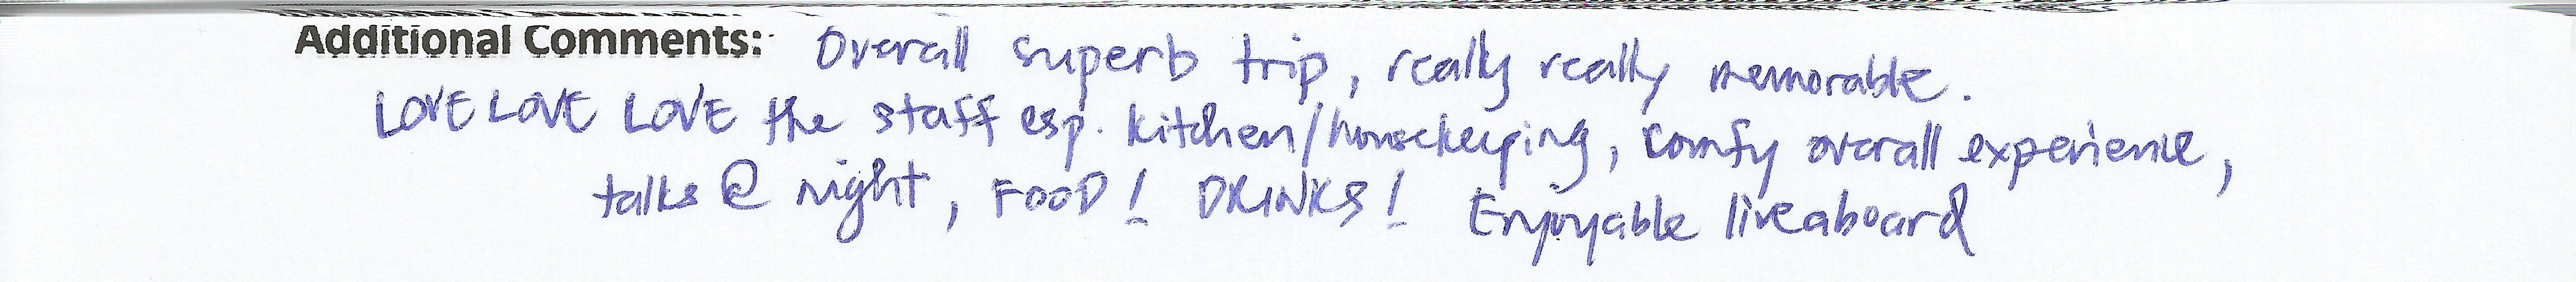 Additional Comments: Overall superb trip, really really memorable.
LOVE LOVE LOVE the staff esp. kitchen/housekeeping, comfy overall experience,
talks @ night, FOOD! DRINKS! Enjoyable liveaboard